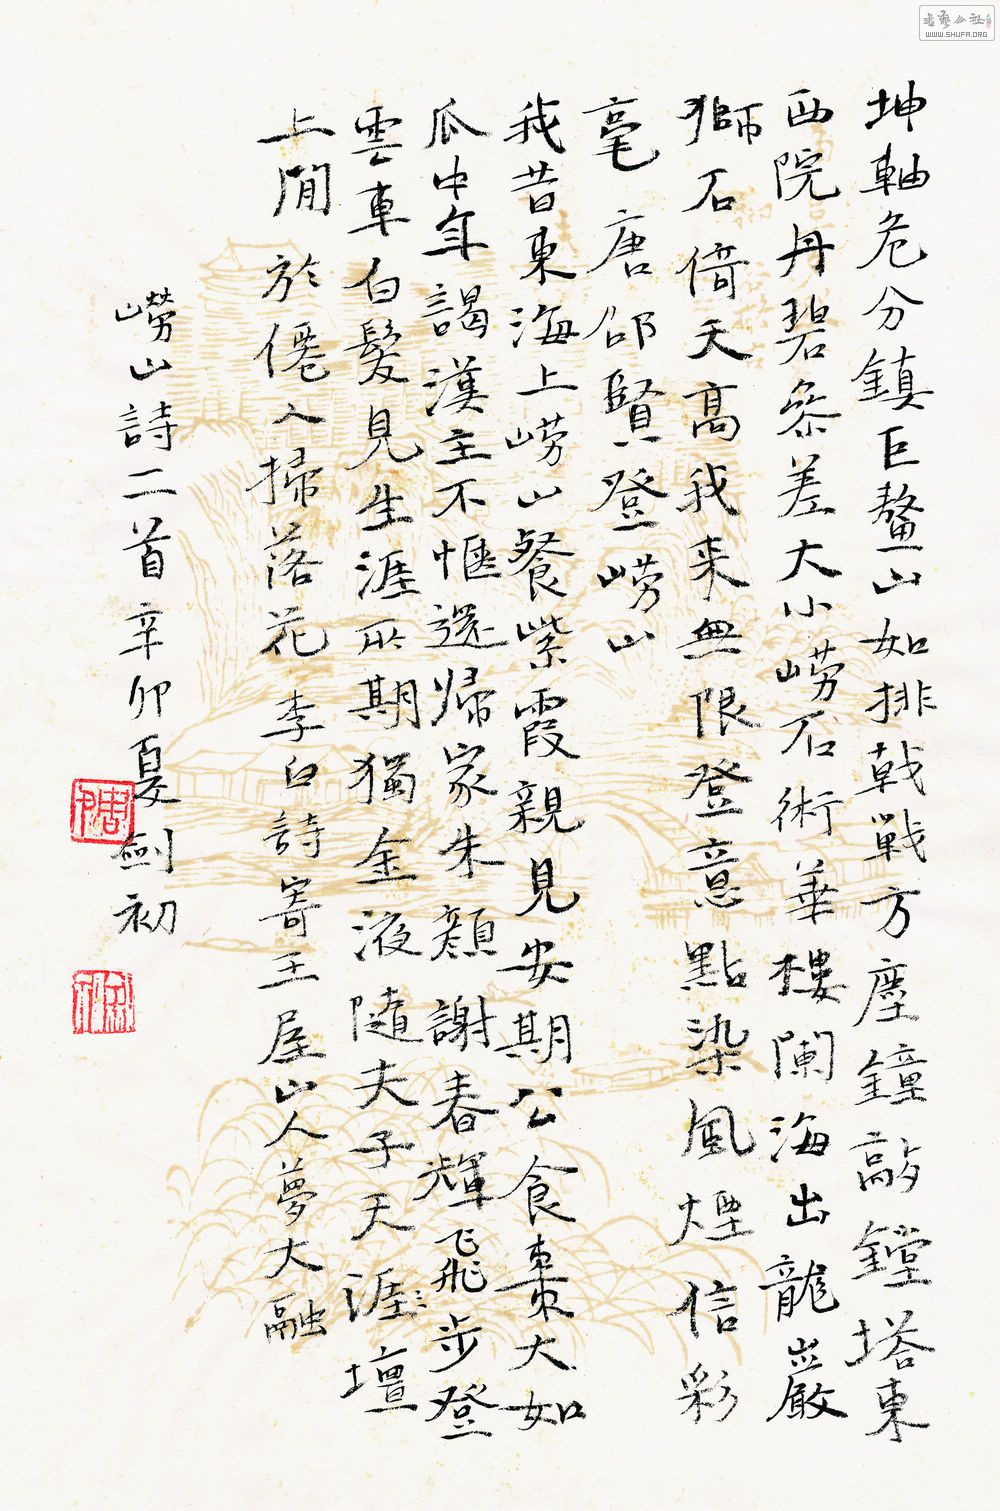 坤軸危分鎮巨鰲山如排戟戰方塵鐘敲鏜塔東
西院丹碧參差大小嶗石術華樓闌海出龍巖
獅石倚天高我来無限登意點染風煙信彩
毫 唐邵賢登嶗山
我昔東海上嶗山餐紫霞親見安期公食棗大如
瓜中年謁漢主不愜還帰家朱顏謝春輝飛步登
雲車白髮見生涯所期獨金液隨夫子天涯壇
上閒於僊人掃落花 李白詩寄王屋山人夢大融
嶗山詩二首辛卯夏劍初
書藝公社
WWW.SHUFA.ORG